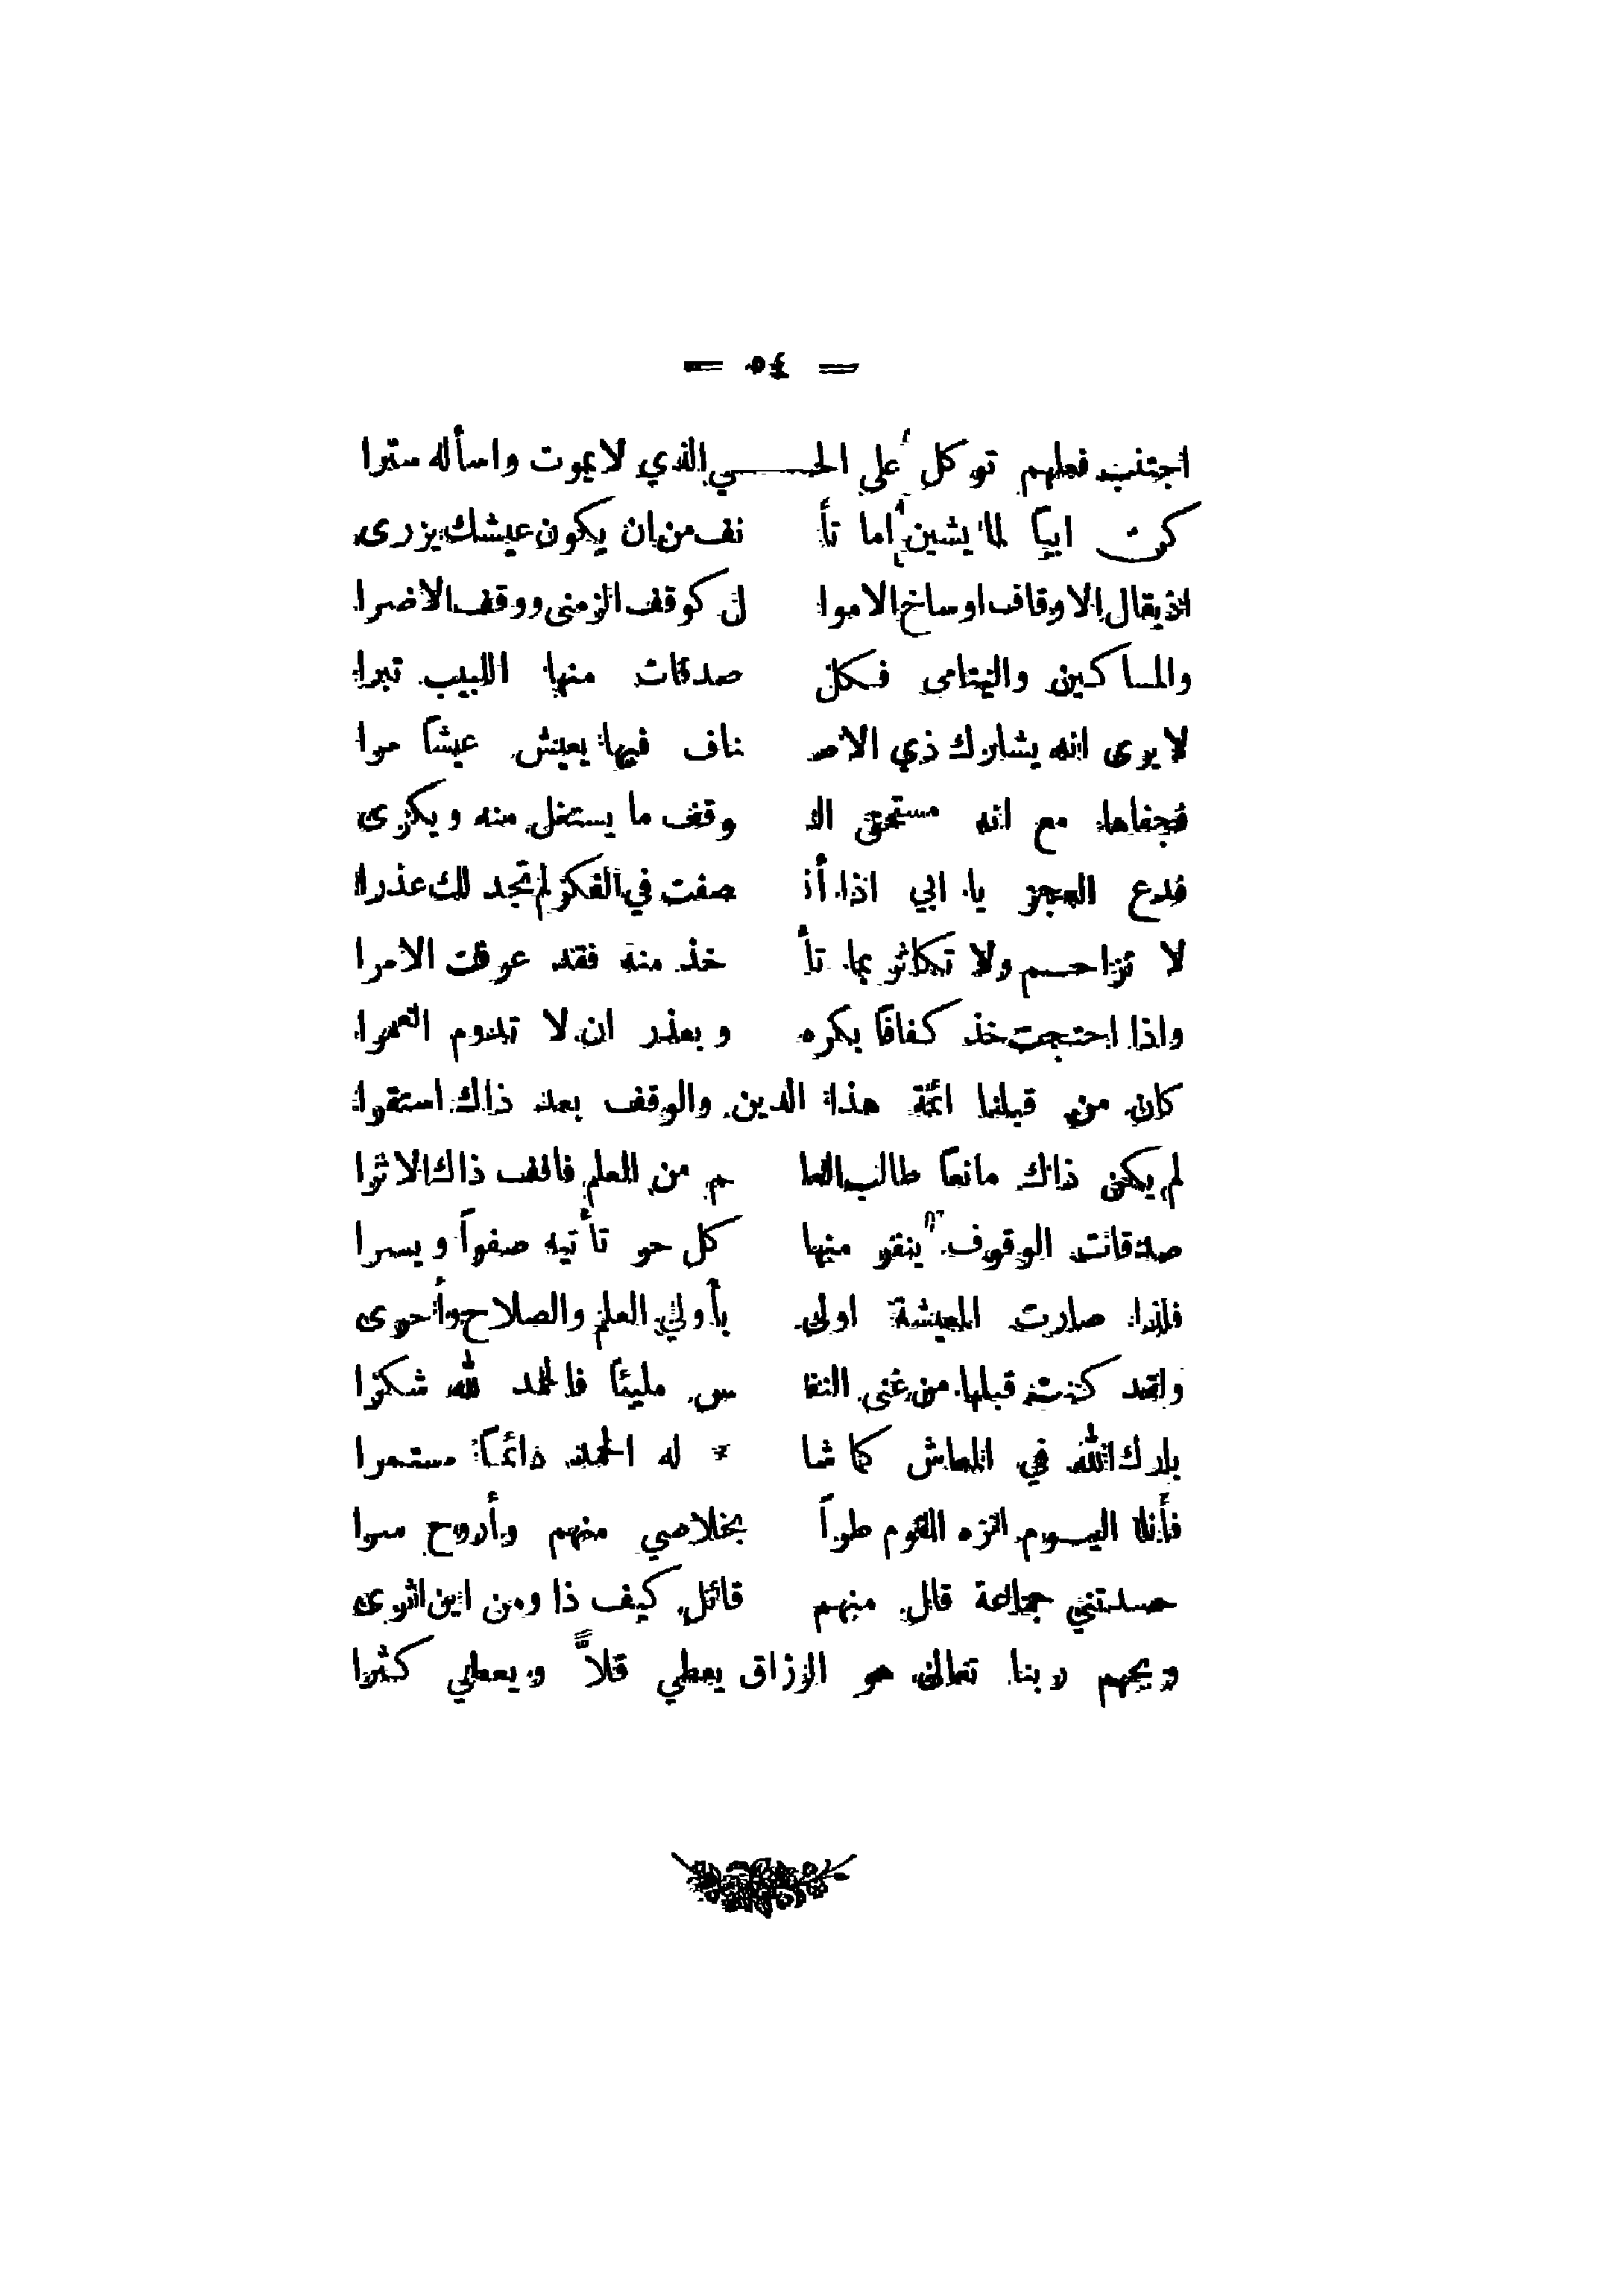 = ٥٤ =
اجتنب فعلهم توكل على الحـــــي الذي لا يموت واسأله سترا
كن ابياً لما يشين اما تأ نف من ان يكون عيشك يزرى
اذ يقال الاوقاف اوساخ الاموا ل كوقف الزمنى ووقف الاضرا
والمساكين واليتامى فكل صدقات منها اللبيب تبرا
لا يرى انه يشارك ذي الاصـ ناف فيها يعيش عيشاً مرا
فجفاها مع انه مستحق الـ وقف ما يستغل منه ويكرى
فدع العجز يا ابي اذا أنـ صفت في الفكر لم تجد لك عذرا
لا تزاحم ولا تكاثر بما تأ خذ منه فقد عرفت الامرا
واذا احتجت خذ كفافاً بكره وبعذر ان لا تدوم العمرا
كان من قبلنا ائمة هذا الدين والوقف بعد ذاك استقرا
لم يكن ذاك مانعاً طالب العلـ م من العلم فاقف ذاك الاثرا
صدقات الوقوف ينفر منها كل حر تأتيه صفواً ويسرا
فلذا صارت المعيشة اولى بأولي العلم والصلاح وأحرى
ولقد كنت قبلها من غنى النفـ س مليئاً فالحمد لله شكرا
بارك الله في المعاش كما شا ء له الحمد دائماً مستمرا
فأنا اليوم انزه القوم طراً بخلاصي منهم وأروح سرا
حسدتني جماعة قال منهم قائل كيف ذا ومن اين اثرى
ويحهم ربنا تعالى هو الرزاق يعطي قلاً ويعطي كثرا